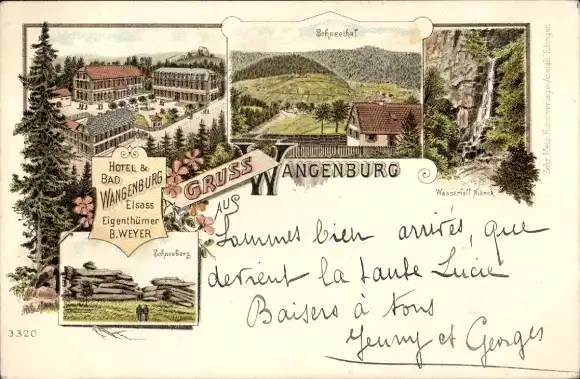 Schneethal
HOTEL &
BAD
WANGENBURG
Elsass
Eigenthümer
B. WEYER
GRUSS
AUS
WANGENBURG
Wasserfall Nideck
Schneeberg
3320
Sommes bien arrivés, que
devient la tante Lucie
Baisers à tous
Jenny et Georges